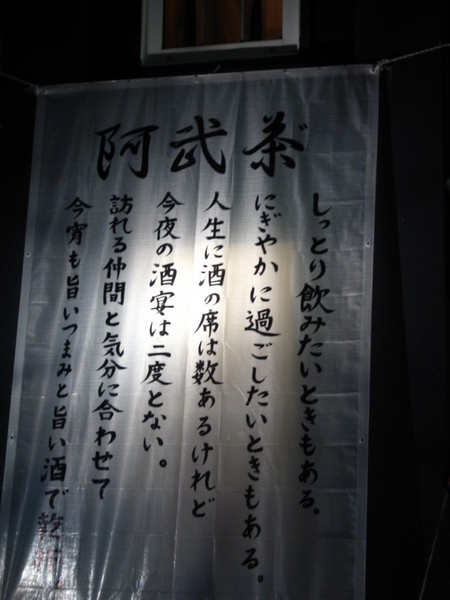 阿武茶
しっとり飲みたいときもある。
にぎやかに過ごしたいときもある。
人生に酒の席は数あるけれど
今夜の酒宴は二度とない。
訪れる仲間と気分に合わせて
今宵も旨いつまみと旨い酒で乾